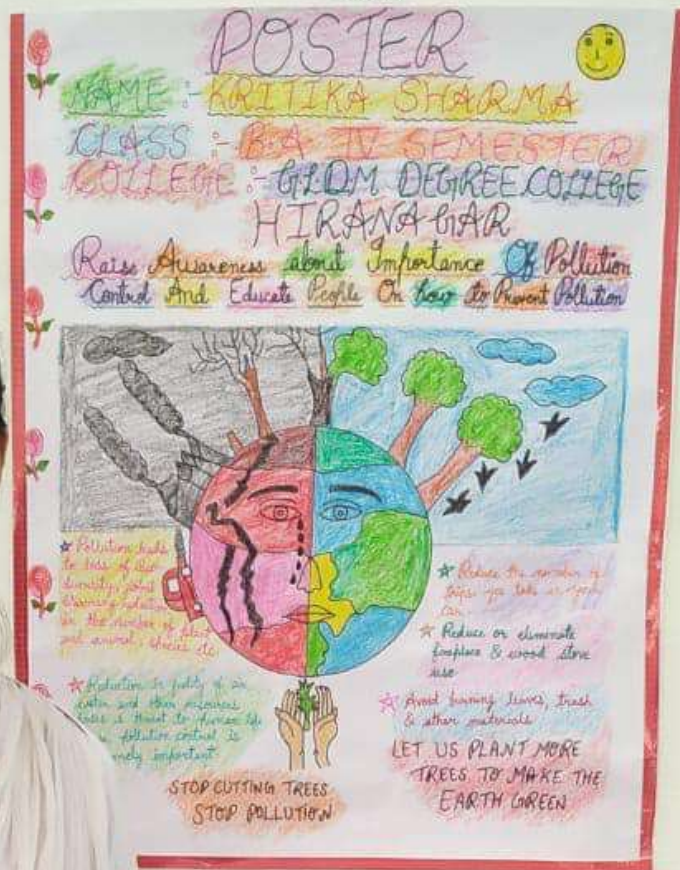 POSTER
NAME :- KRITIKA SHARMA
CLASS :- B.A IV SEMESTER
COLLEGE :- GLDM DEGREE COLLEGE
HIRANAGAR
Raise Awareness about Importance Of Pollution
Control And Educate People On how to Prevent Pollution
Pollution leads
to loss of
diversity,
in the number of plant
and animal, species etc
Reduction in of air
water and other resources
is threat to human life
pollution control is
important
Reduce the number of
trips you take in your
car.
Reduce or eliminate
fireplace & wood stove
use
Avoid burning leaves, trash
& other materials
LET US PLANT MORE
TREES TO MAKE THE
EARTH GREEN
STOP CUTTING TREES
STOP POLLUTION